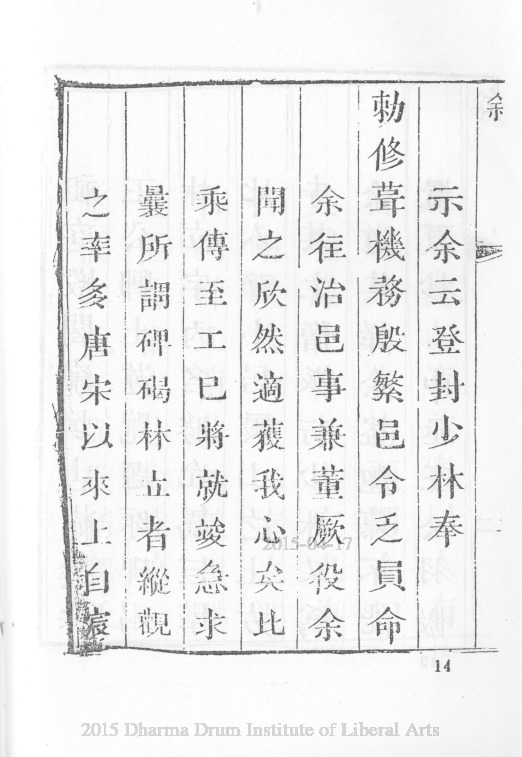 余
示余云登封少林奉
勑修葺機務殷繁邑令乏員命
余往治邑事兼董厥役余
聞之欣然適獲我心矣比
乘傳至工巳將就竣急求
曩所謂碑碣林立者縱觀
之率多唐宋以來上自
14
2015-04-17
2015 Dharma Drum Institute of Liberal Arts